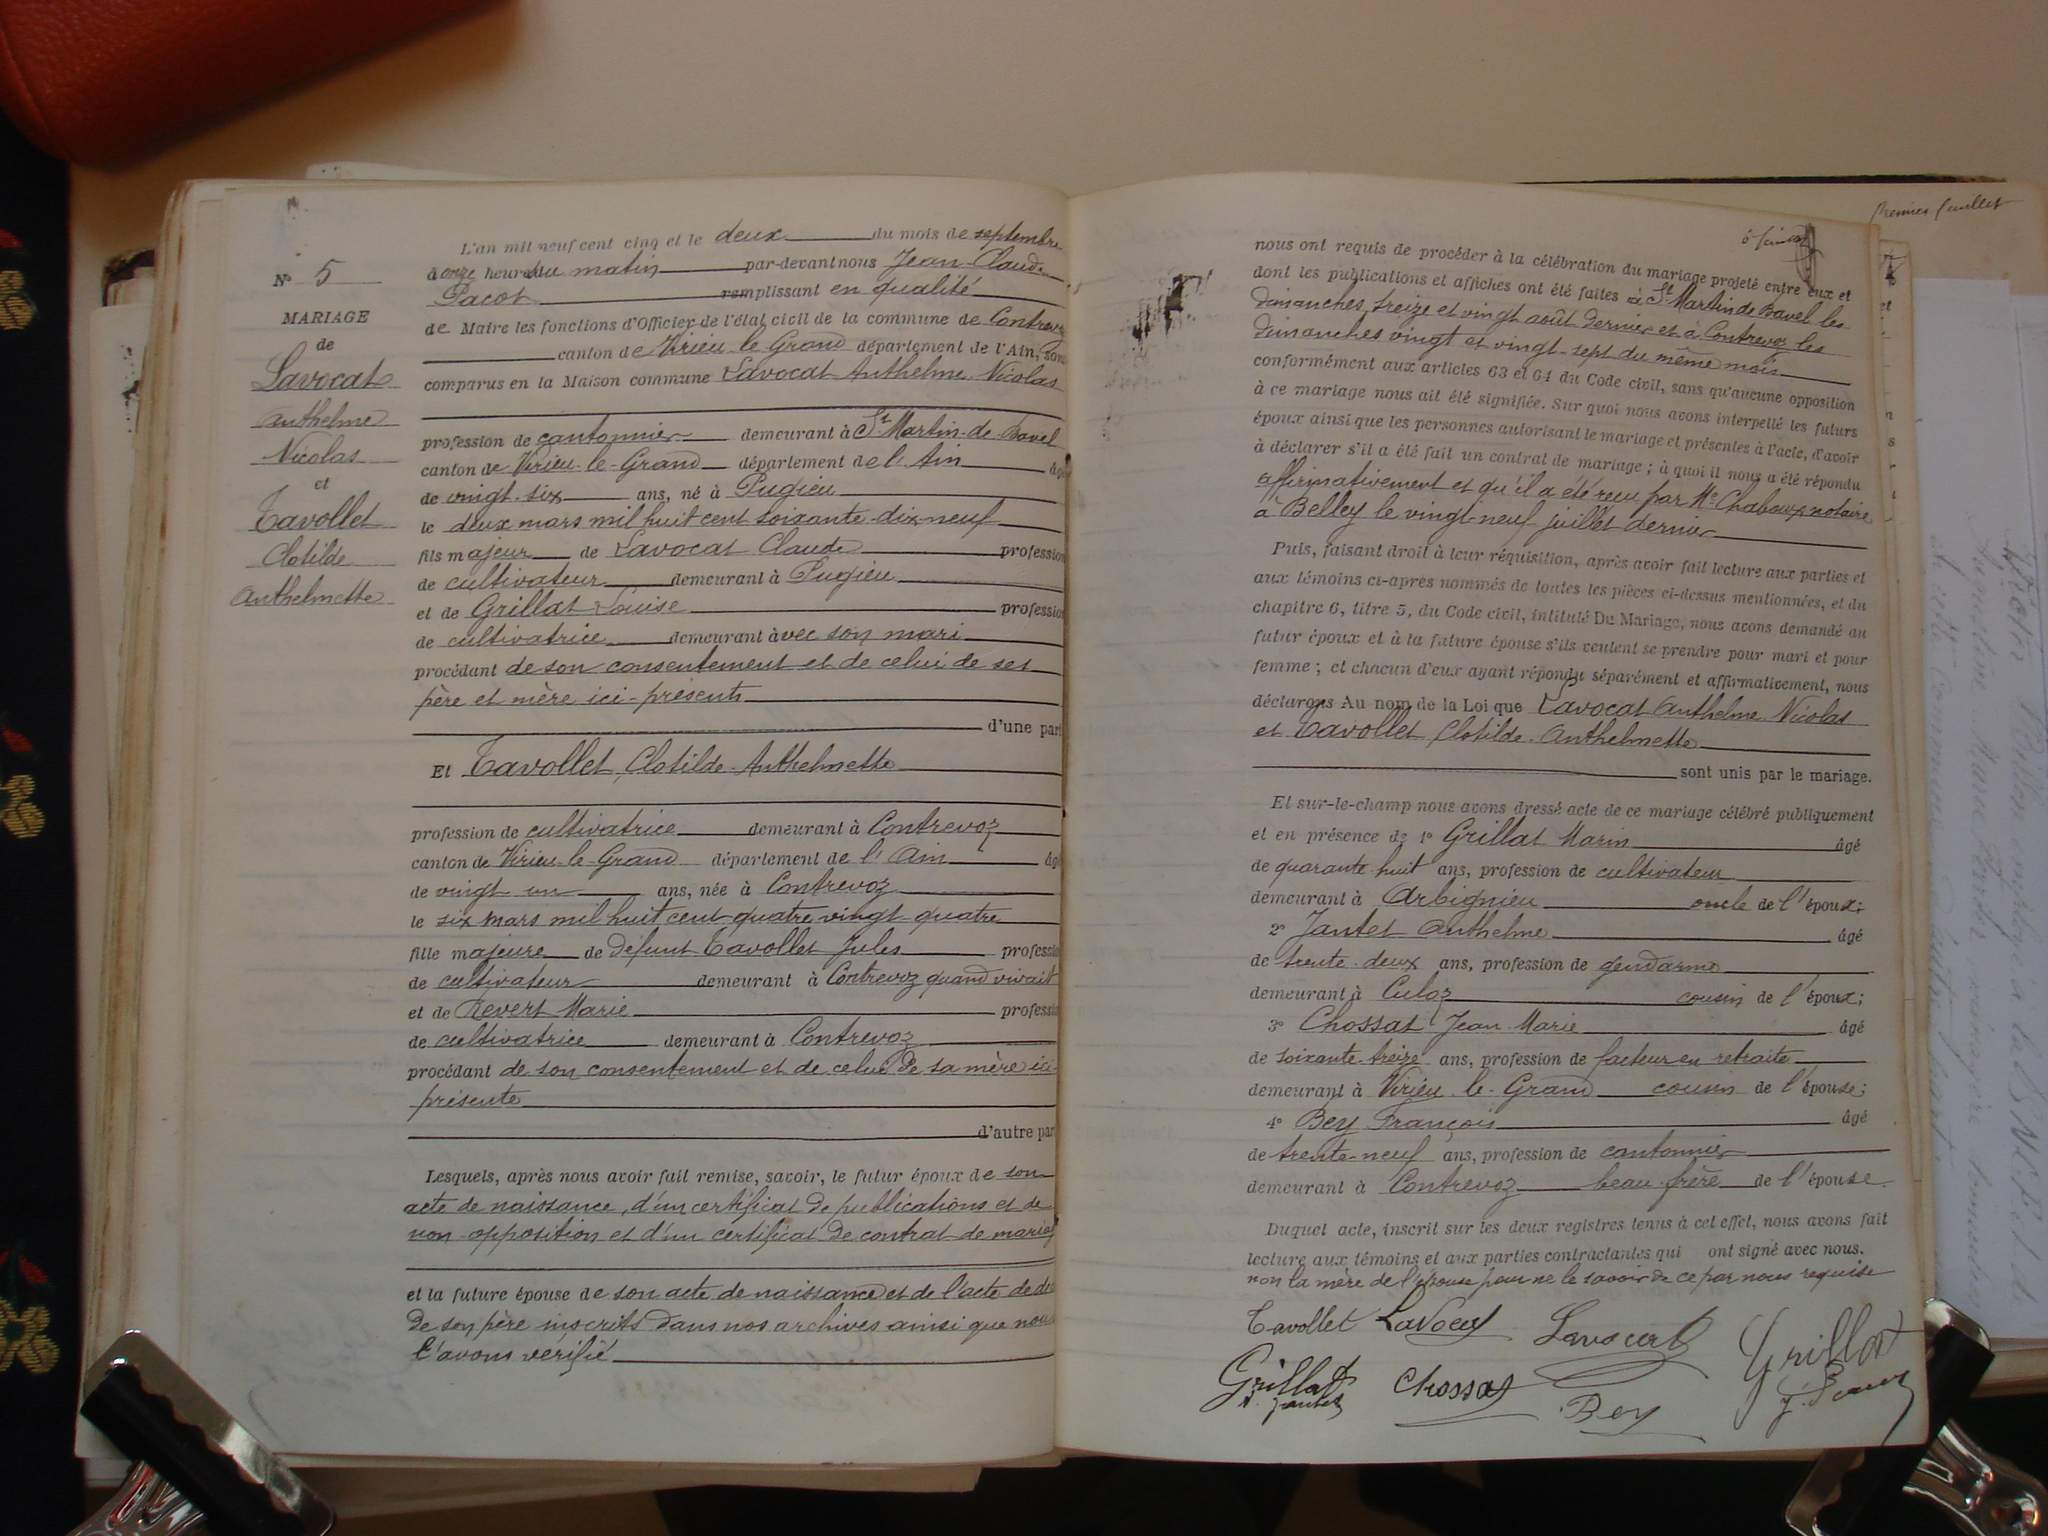 L'an mil neuf cent cinq et le deux du mois de septembre
à onze heures du matin par-devant nous Jean-Claude
Pacot remplissant en qualité
de Maire les fonctions d'Officier de l'état civil de la commune de Contrevoz
canton de Virieu-le-Grand département de l'Ain, sont
comparus en la Maison commune Lavocat Anthelme Nicolas
N° 5
MARIAGE
de
Lavocat
Anthelme
Nicolas
et
Tavollet
Clotilde
Anthelmette
profession de cantonnier demeurant à St Martin-de-Bavel
canton de Virieu-le-Grand département de l'Ain âgé
de vingt-six ans, né à Pugieu
le deux mars mil huit cent soixante-dix-neuf
fils majeur de Lavocat Claude profession
de cultivateur demeurant à Pugieu
et de Grillat Louise profession
de cultivatrice demeurant avec son mari
procédant de son consentement et de celui de ses
père et mère ici-présents
d'une part
Et Tavollet Clotilde-Anthelmette
profession de cultivatrice demeurant à Contrevoz
canton de Virieu-le-Grand département de l'Ain âgé
de vingt un ans, née à Contrevoz
le six mars mil huit cent quatre vingt-quatre
fille majeure de défunt Tavollet Jules profession
de cultivateur demeurant à Contrevoz quand vivait
et de Revert Marie profession
de cultivatrice demeurant à Contrevoz
procédant de son consentement et de celui de sa mère ici-
présente
d'autre part
Lesquels, après nous avoir fait remise, savoir, le futur époux de son
acte de naissance, d'un certificat de publications et de
non-opposition et d'un certificat de contrat de mariag
et la future épouse de son acte de naissance et de l'acte de dé
de son père inscrits dans nos archives ainsi que nous
l'avons vérifié
premier feuillet
nous ont requis de procéder à la célébration du mariage projeté entre eux et
dont les publications et affiches ont été faites à St Martin de Bavel les
dimanches treize et vingt août dernier et à Contrevoz les
dimanches vingt et vingt-sept du même mois
conformément aux articles 63 et 64 du Code civil, sans qu'aucune opposition
à ce mariage nous ait été signifiée. Sur quoi nous avons interpellé les futurs
époux ainsi que les personnes autorisant le mariage et présentes à l'acte, d'avoir
à déclarer s'il a été fait un contrat de mariage ; à quoi il nous a été répondu
affirmativement et qu'il a été reçu par Me Chaboux notaire
à Belley le vingt-neuf juillet dernier
Puis, faisant droit à leur réquisition, après avoir fait lecture aux parties et
aux témoins ci-après nommés de toutes les pièces ci-dessus mentionnées, et du
chapitre 6, titre 5, du Code civil, intitulé Du Mariage, nous avons demandé au
futur époux et à la future épouse s'ils veulent se prendre pour mari et pour
femme ; et chacun d'eux ayant répondu séparément et affirmativement, nous
déclarons Au nom de la Loi que Lavocat Anthelme Nicolas
et Tavollet Clotilde-Anthelmette
sont unis par le mariage.
Et sur-le-champ nous avons dressé acte de ce mariage célébré publiquement
et en présence de 1° Grillat Marin âgé
de quarante huit ans, profession de cultivateur
demeurant à Arbignieu oncle de l'époux;
2° Jantet Anthelme âgé
de trente-deux ans, profession de gendarme
demeurant à Culoz cousin de l'époux;
3° Chossat Jean-Marie âgé
de soixante-treize ans, profession de facteur en retraite
demeurant à Virieu-le-Grand cousin de l'épouse;
4° Bey François âgé
de trente-neuf ans, profession de cantonnier
demeurant à Contrevoz beau-frère de l'épouse.
Duquel acte, inscrit sur les deux registres tenus à cet effet, nous avons fait
lecture aux témoins et aux parties contractantes qui ont signé avec nous.
non la mère de l'épouse pour ne le savoir de ce par nous requise
Tavollet Lavocat Lavocat Grillat
Grillat Chossat Bey
A. Jantet